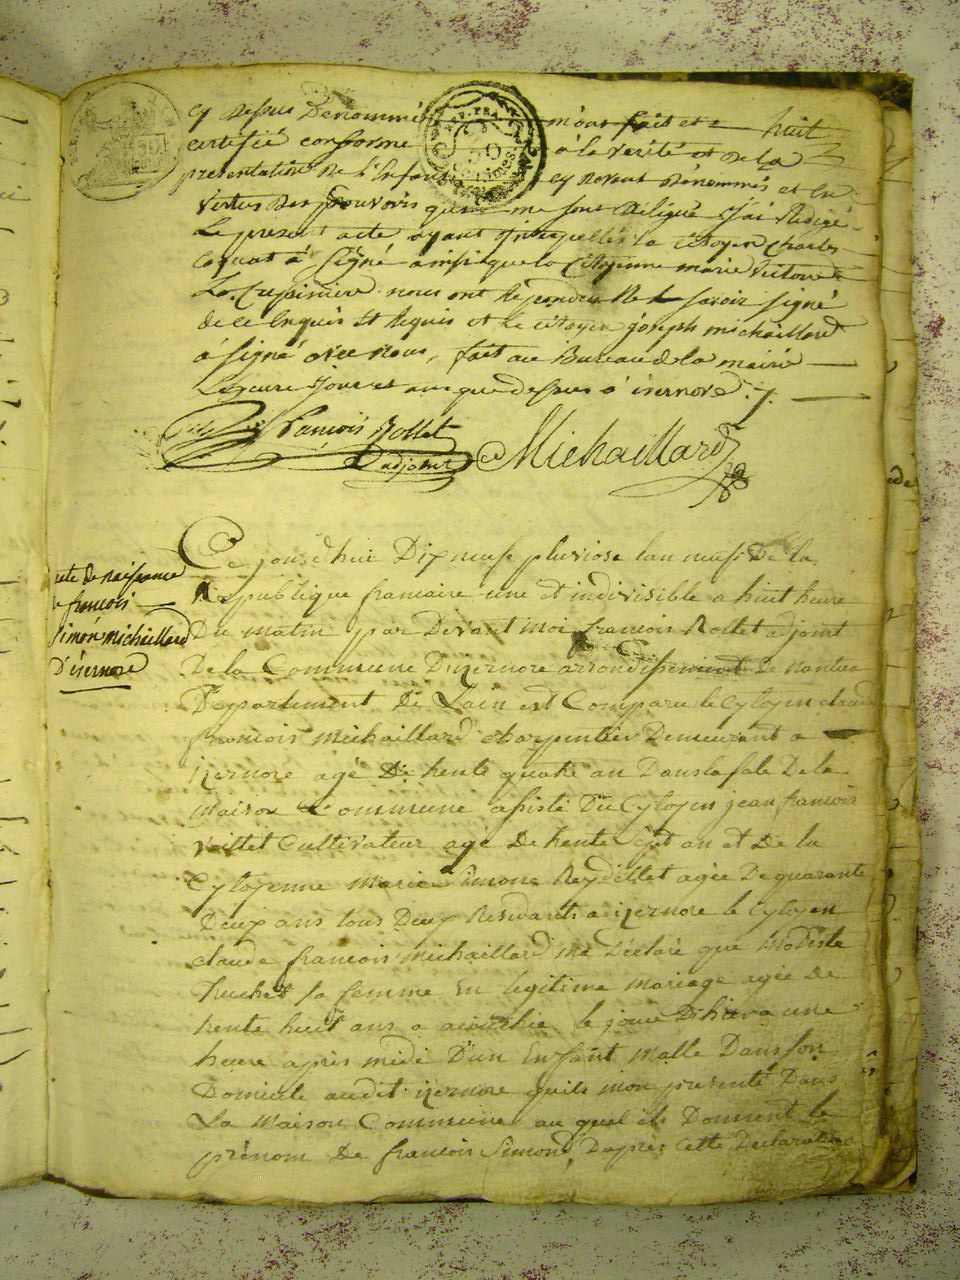 huit
cy dessus Denommés m'ont fait et
certifié conforme a la verité et de la
presentation de l'Enfant cy devant Dénommés et En
vertus des pouvoirs qui me sont délégué J'ai Redigé
Le present acte ayant interpellés le citoyen Charles
à signé ainsi que la Citoyenne marie victoire
La nous ont Repondu Ne savoir signé
de ce Enquis et Requis et le citoyen joseph michaillard
à signé avec nous, fait au Bureau de la mairie
Les jour et an que dessus à izernore
francois Rollet
adjoint Michaillard
acte de naissance
de francois
Simon michaillard
D'izernore
Ce jourd'hui Dix neuf pluviose lan neuf De la
Republique francaise une et indivisible a huit heure
Du matin par Devant Moi francois Rollet adjoint
De la Commune Dizernore arrondissement De nantua
Departement De Lain est Comparu le Cytoyen claude
francois Michaillard charpentier Demeurant a
izernore agé De trente quatre an Dans la sale De la
Maison Commune assisté Du Cytoyen jean francois
Cultivateur agé De trente sept an et De la
Cytoyenne Marie Simone Reydellet agée De quarante
Deux ans tous Deux Residants a izernore le Cytoyen
claude francois Michaillard Ma Déclaré que Modeste
sa femme En legitime Mariage agée De
trente huit ans a le jour D'hier a une
heure après midi D'un Enfant Malle Dans son
Domicile audit izernore quils mon presenté Dans
La Maison Commune au quel ils Donnent le
prénom De francois Simond, Dapres Cette Declaration